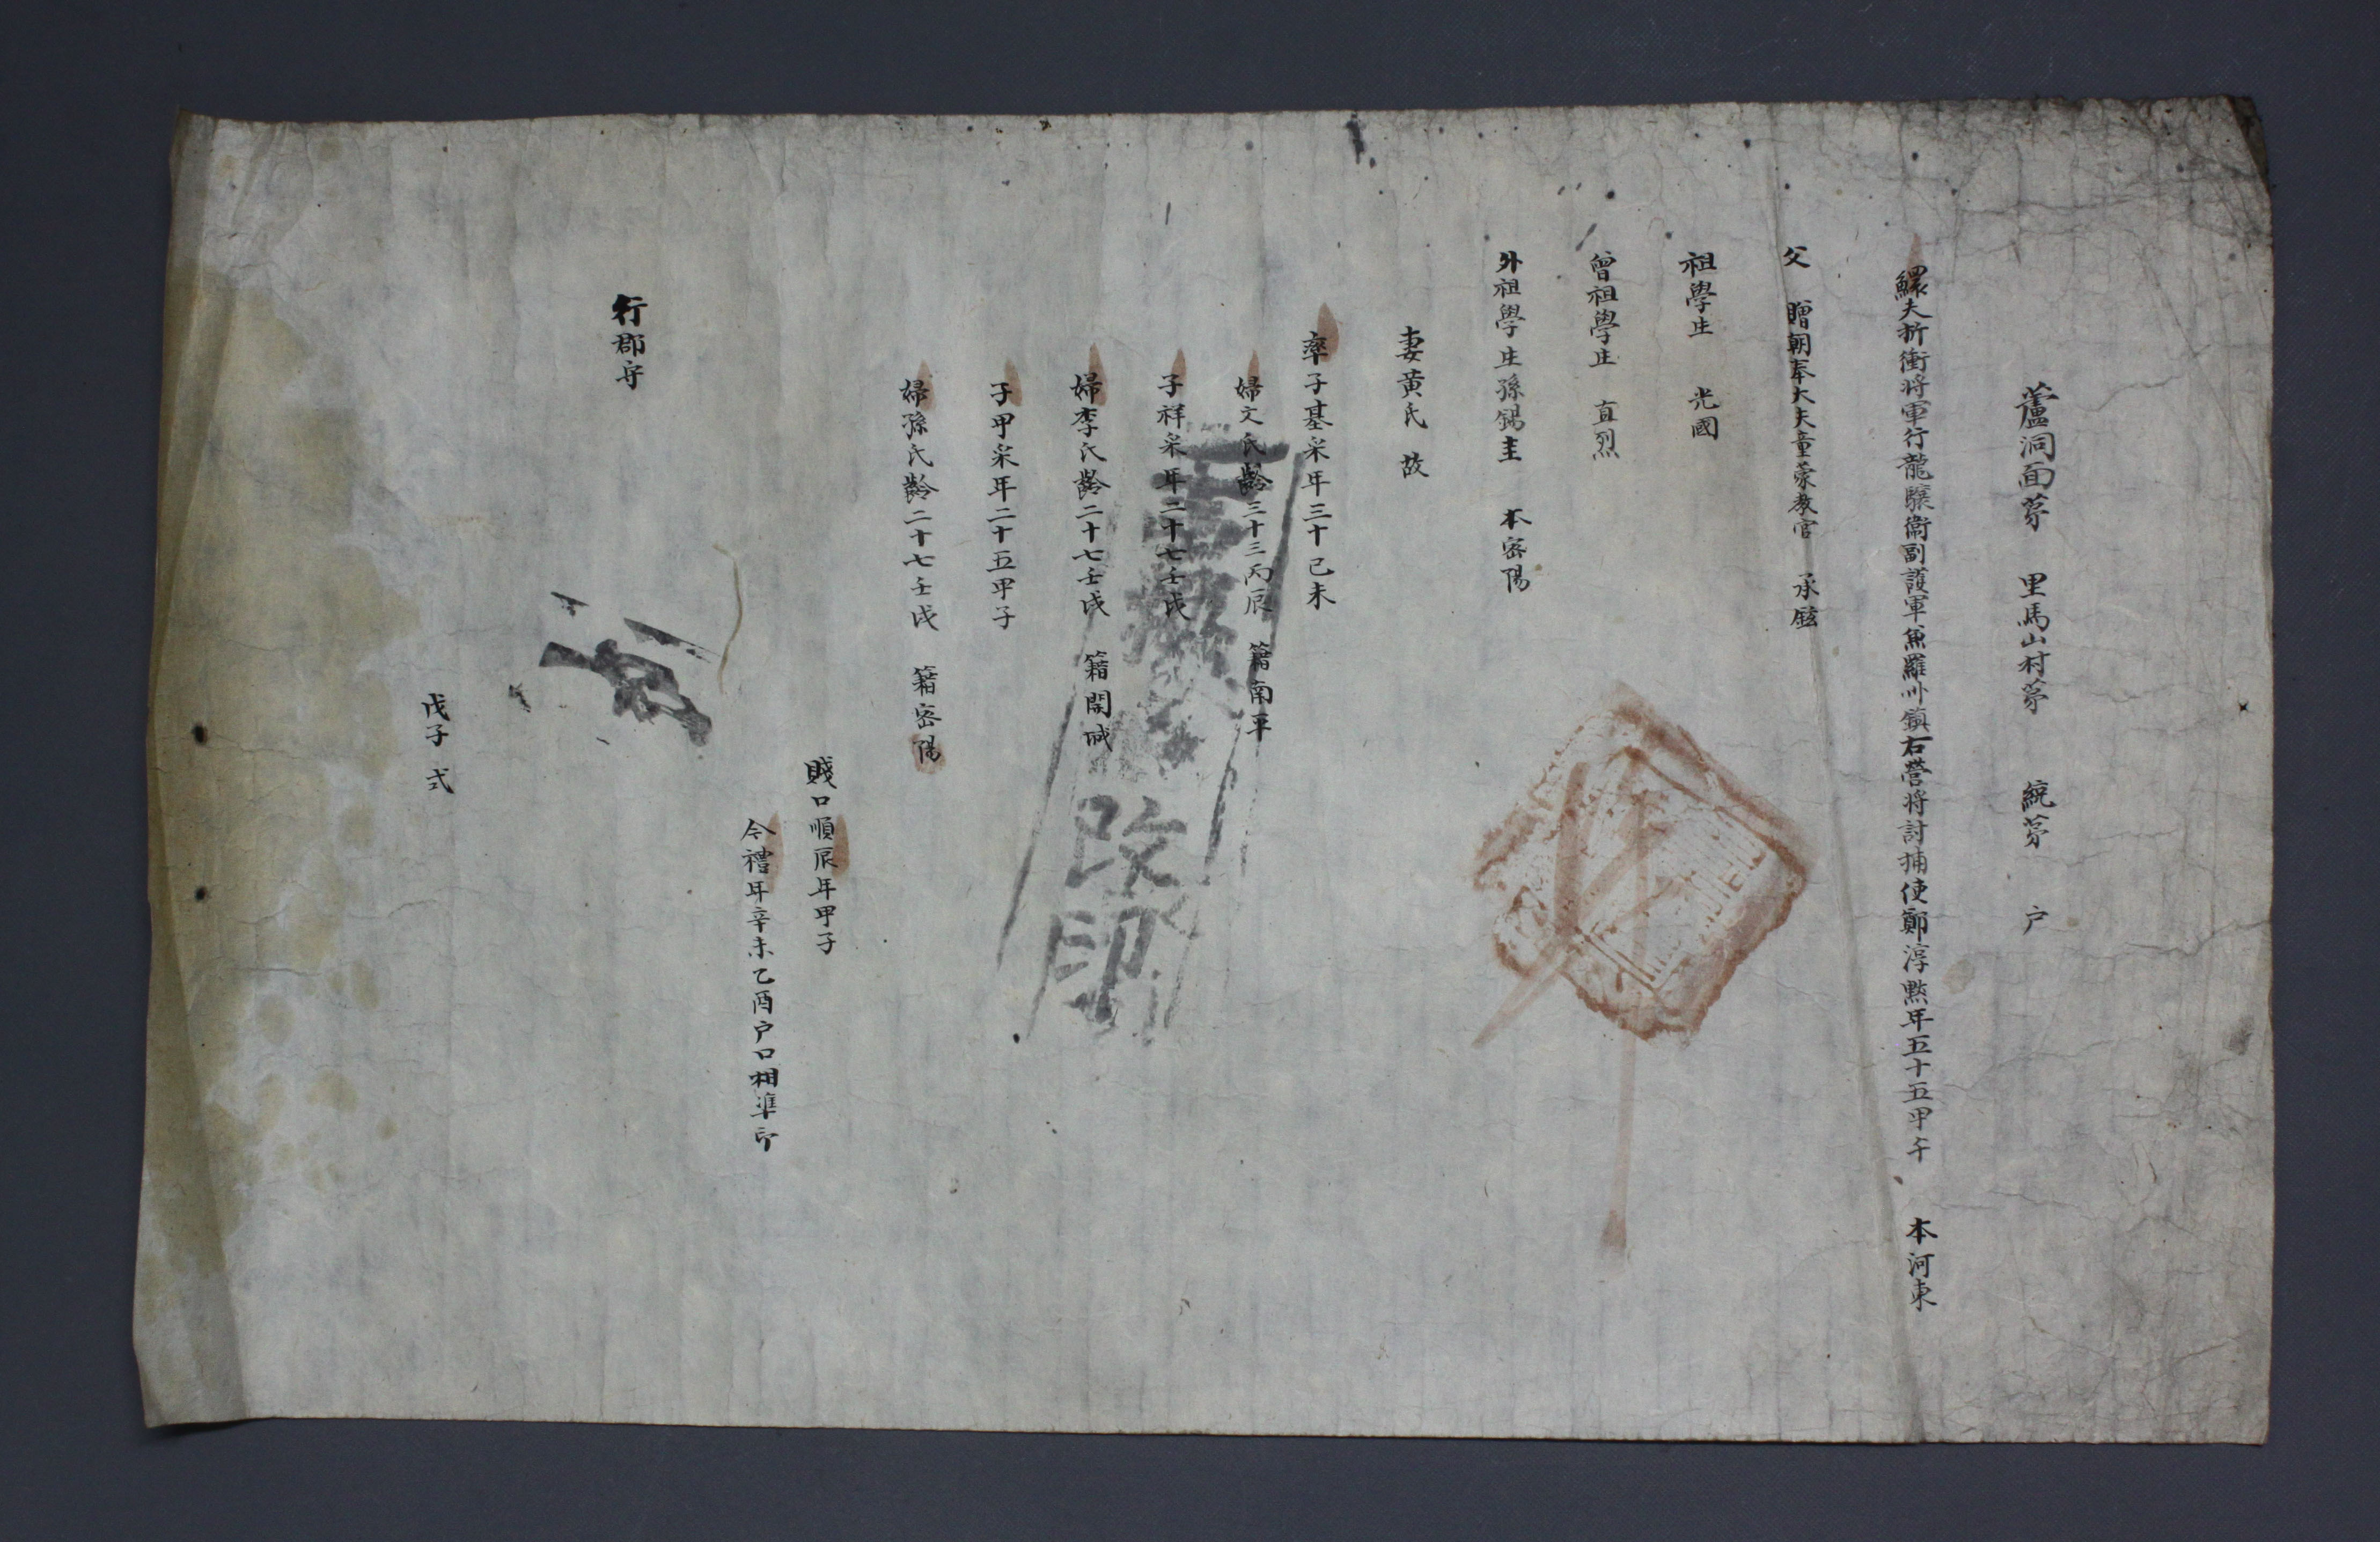 蘆洞面苐 里馬山村苐 統苐 户
鰥夫折衝将軍行龍驤衛副護軍兼羅州鎭右營将討捕使鄭淳㸃年五十五甲午 本河東
父 贈朝奉大夫童蒙教官 承鉉
祖學生 光國
曾祖學生 直烈
外祖學生孫錫圭 本密陽
妻黄氏 故
率子基采年三十己未
婦文氏齡三十三丙辰 籍南平
子祥采年二十七壬戌
婦李氏齡二十七壬戌 籍開城
子甲采年二十五甲子
婦孫氏齡二十七壬戌 籍密陽
賤口順辰年甲子
令禮年辛未乙酉户口相準印
行郡守
戊子 式
改印